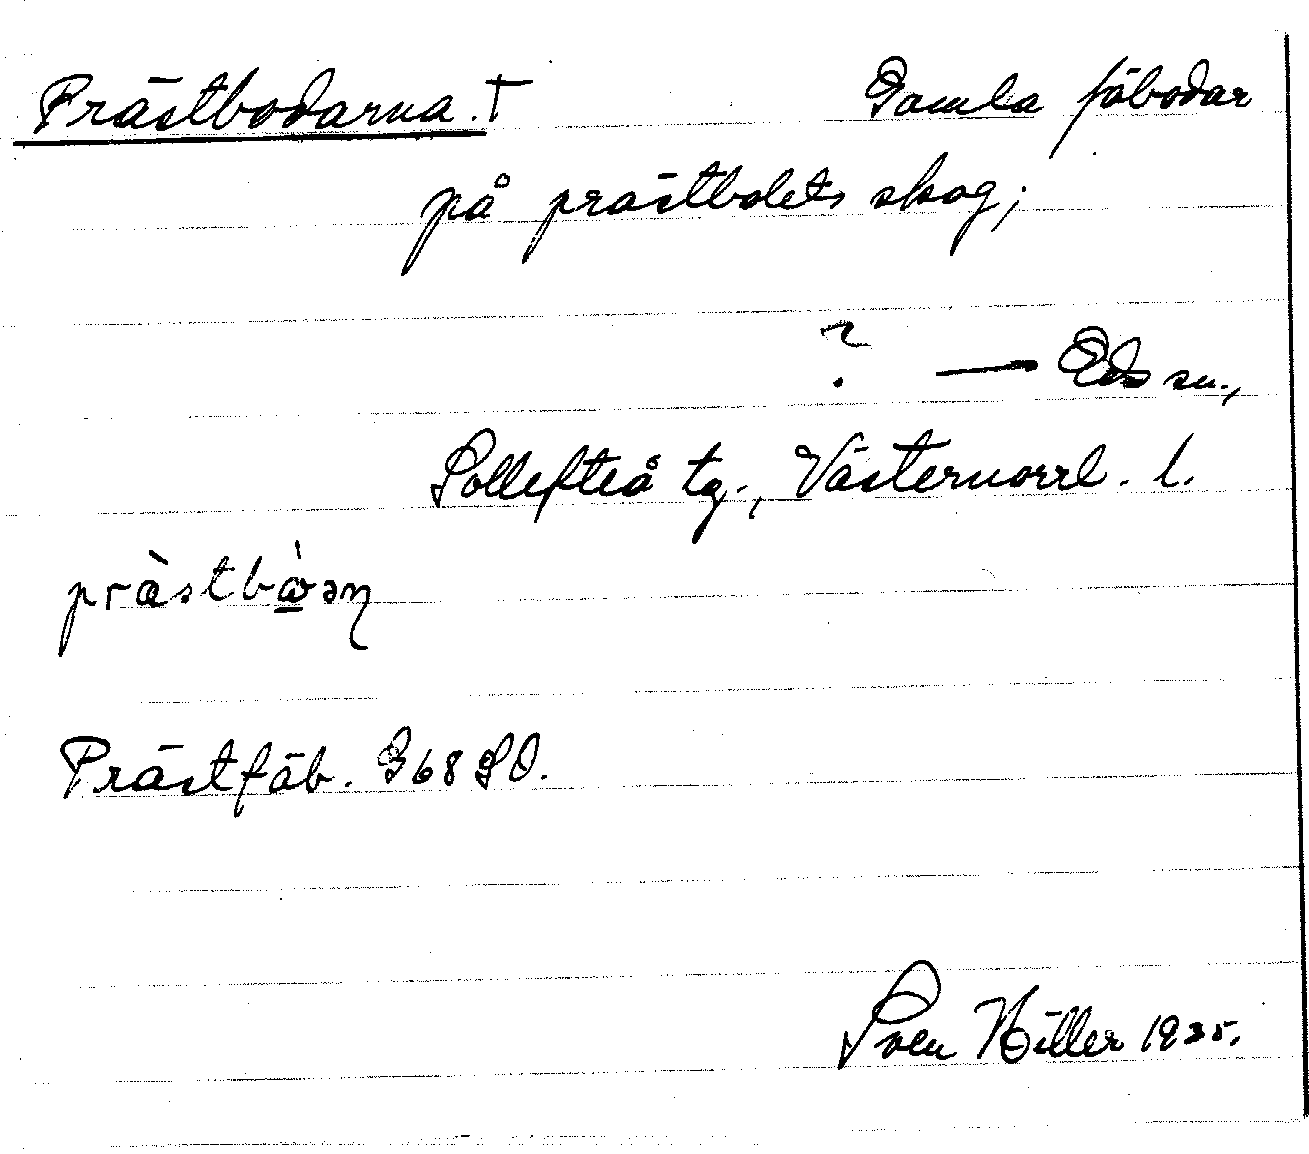 Prästbodarna. † Gamla fäbodar
på prästbolets skog;
? — Eds sn.,
Sollefteå tg., Västernorrl. l.
prästfäb. G68SO.
Sven Hiller 1935.